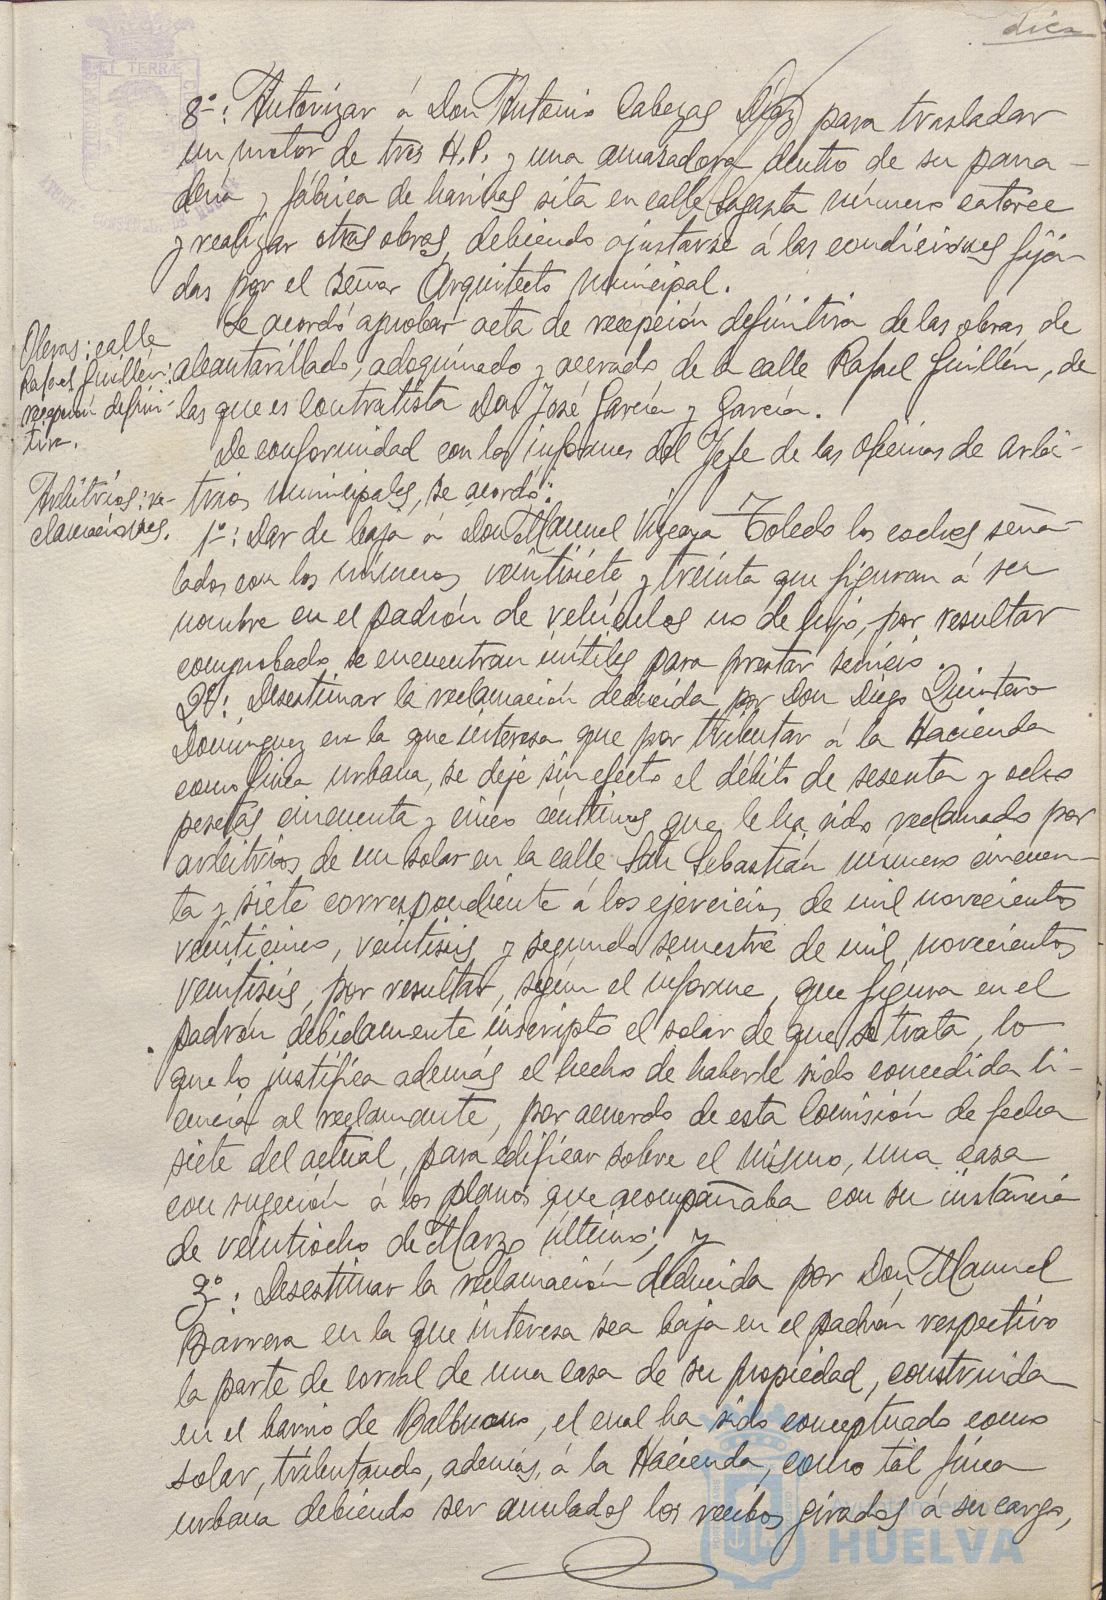 diez
8º: Autorizar á Don Antonio Cabezas Díaz para trasladar
un motor de tres H.P. y una amasadora dentro de su pana-
dería y fábrica de harinas sita en calle Sagasta número catorce
y realizar otras obras, debiendo ajustarse á las condiciones fija-
das por el señor Arquitecto municipal.
Obras: calle
Rafael Guillén:
recepción defini-
tiva.
Se acordó aprobar acta de recepción definitiva de las obras de
alcantarillado, adoquinado y acerado de la calle Rafael Guillén, de
las que es contratista Don José García y García.
Arbitrios: re-
clamaciones.
De conformidad con los informes del Jefe de las oficinas de arbi-
trios municipales, se acordó:
1º: Dar de baja á Don Manuel Vizcaya Toledo los coches seña-
lados con los números veintisiete y treinta que figuran á su
nombre en el padrón de vehículos no de lujo, por resultar
comprobado se encuentran inútiles para prestar servicio.
2º: Desestimar la reclamación deducida por Don Diego Quintero
Domínguez en la que interesa que por tributar á la Hacienda
como finca urbana, se deje sin efecto el débito de sesenta y ocho
pesetas cincuenta y cinco céntimos que le ha sido reclamado por
arbitrios de un solar en la calle San Sebastián número cincuen-
ta y siete correspondiente á los ejercicios de mil novecientos
veinticinco, veintiseis y segundo semestre de mil novecientos
veintiseis, por resultar, según el informe, que figura en el
padrón debidamente inscripto el solar de que se trata, lo
que lo justifica además el hecho de haberle sido concedida li-
cencia al reclamante, por acuerdo de esta Comisión de fecha
siete del actual, para edificar sobre el mismo, una casa
con sugeción á los planos que acompañaba con su instancia
de veintiocho de Marzo último; y
3º: Desestimar la reclamación deducida por Don Manuel
Barrera en la que interesa sea baja en el padrón respectivo
la parte de corral de una casa de su propiedad, construida
en el barrio de Balbueno, el cual ha sido conceptuado como
solar, tributando, además, á la Hacienda, como tal finca
urbana debiendo ser anulados los recibos girados á su cargo,
HUELVA